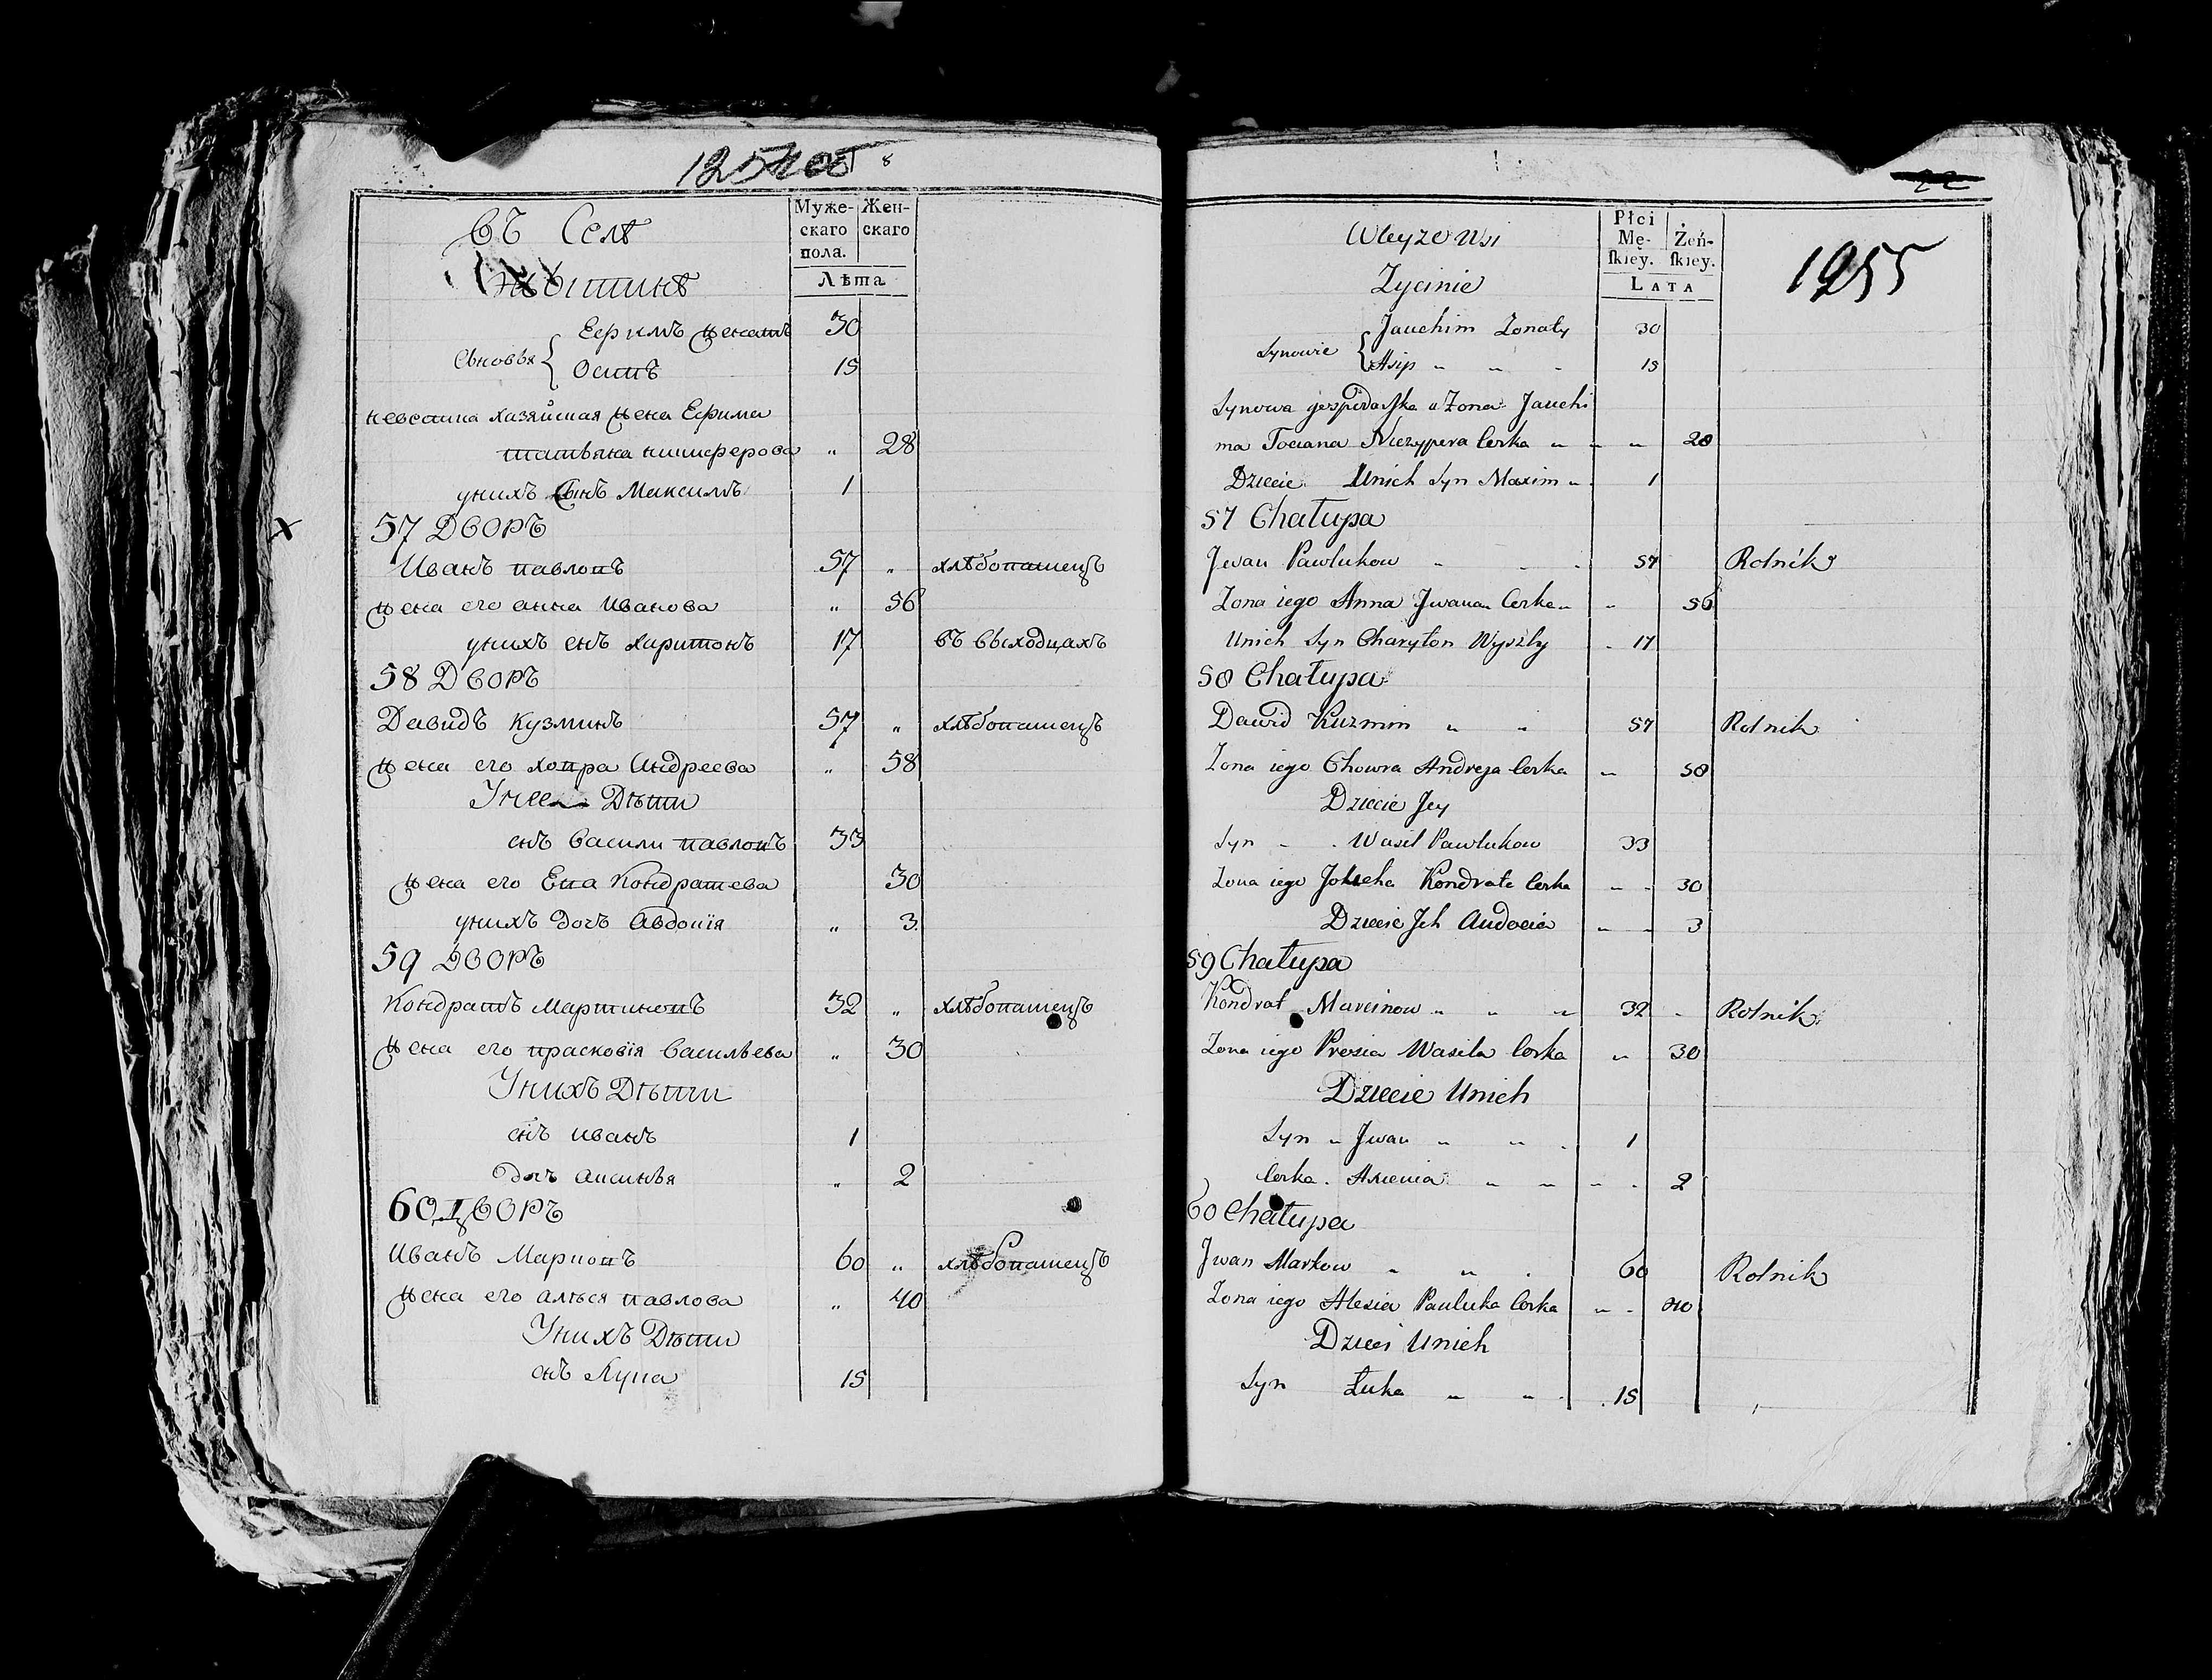 8
въ Селѣ
Муже-
скаго
пола.
Жен-
скаго
Лѣта
Жытинѣ
Ефимъ женатъ 30
Сыновья
Осипъ 15
невестка хазяйская жена Ефима
татьяна никиферова " 28
унихъ Сынъ Максимъ 1
57 Дворъ
Иванъ павловъ 57 " хлѣбопашецъ
жена его анна Иванова " 56
унихъ снъ харитонъ 17 въ выходцахъ
58 Дворъ
Давидъ Кузминъ 57 " хлѣбопашецъ
жена его ховра Андреева " 58
Унее Дѣти
снъ васили павловъ 33
жена его Ева Кондратева 30
унихъ дочъ Авдокія " 3
59 Дворъ
Кондратъ Мартиновъ 32 " хлѣбопашецъ
жена его прасковія васильева " 30
Унихъ Дѣти
снъ иванъ 1
дочъ аксинья " 2
60 Дворъ
Иванъ Марковъ 60 " хлѣбопашецъ
жена его алеся павлова " 40
Унихъ Дѣти
снъ Лука 15
22
Wteyze Wsi
Płci
Mę-
skiey.
Żeń-
skiey.
Lata
1255
Zycinie
Jauchim Zonaty 30
Synowie
Asip " " 15
Synowa gospodarska a Zona Jauchi
ma Taciana Niczypera Corka " " " 28
Dziecie Unich Syn Maxim " 1
57 Chałupa
Jwan Pawlukow 57 Rolnik
Zona iego Anna Jwana Corka " " 56
Unich Syn Charyton Wyszły 17
58 Chałupa
Dawid Kuzmin " " 57 Rolnik
Zona iego Chowra Andreja Corka " 58
Dziecie Jey
Syn Wasil Pawlukow 33
Zona iego Kondrata Corka " 30
Dziecie Jch Audocia " 3
59 Chałupa
Kondrat Marcinow " " " 32 Rolnik
Zona iego Prosia Wasila Corka " 30
Dziecie Unich
Syn " Jwan " " 1
Corka Axienia " " 2
60 Chałupa
Jwan Markow " " 60 Rolnik
Zona iego Alesia Pauluka Corka " 40
Dzieci Unich
Syn Łuka " " 15